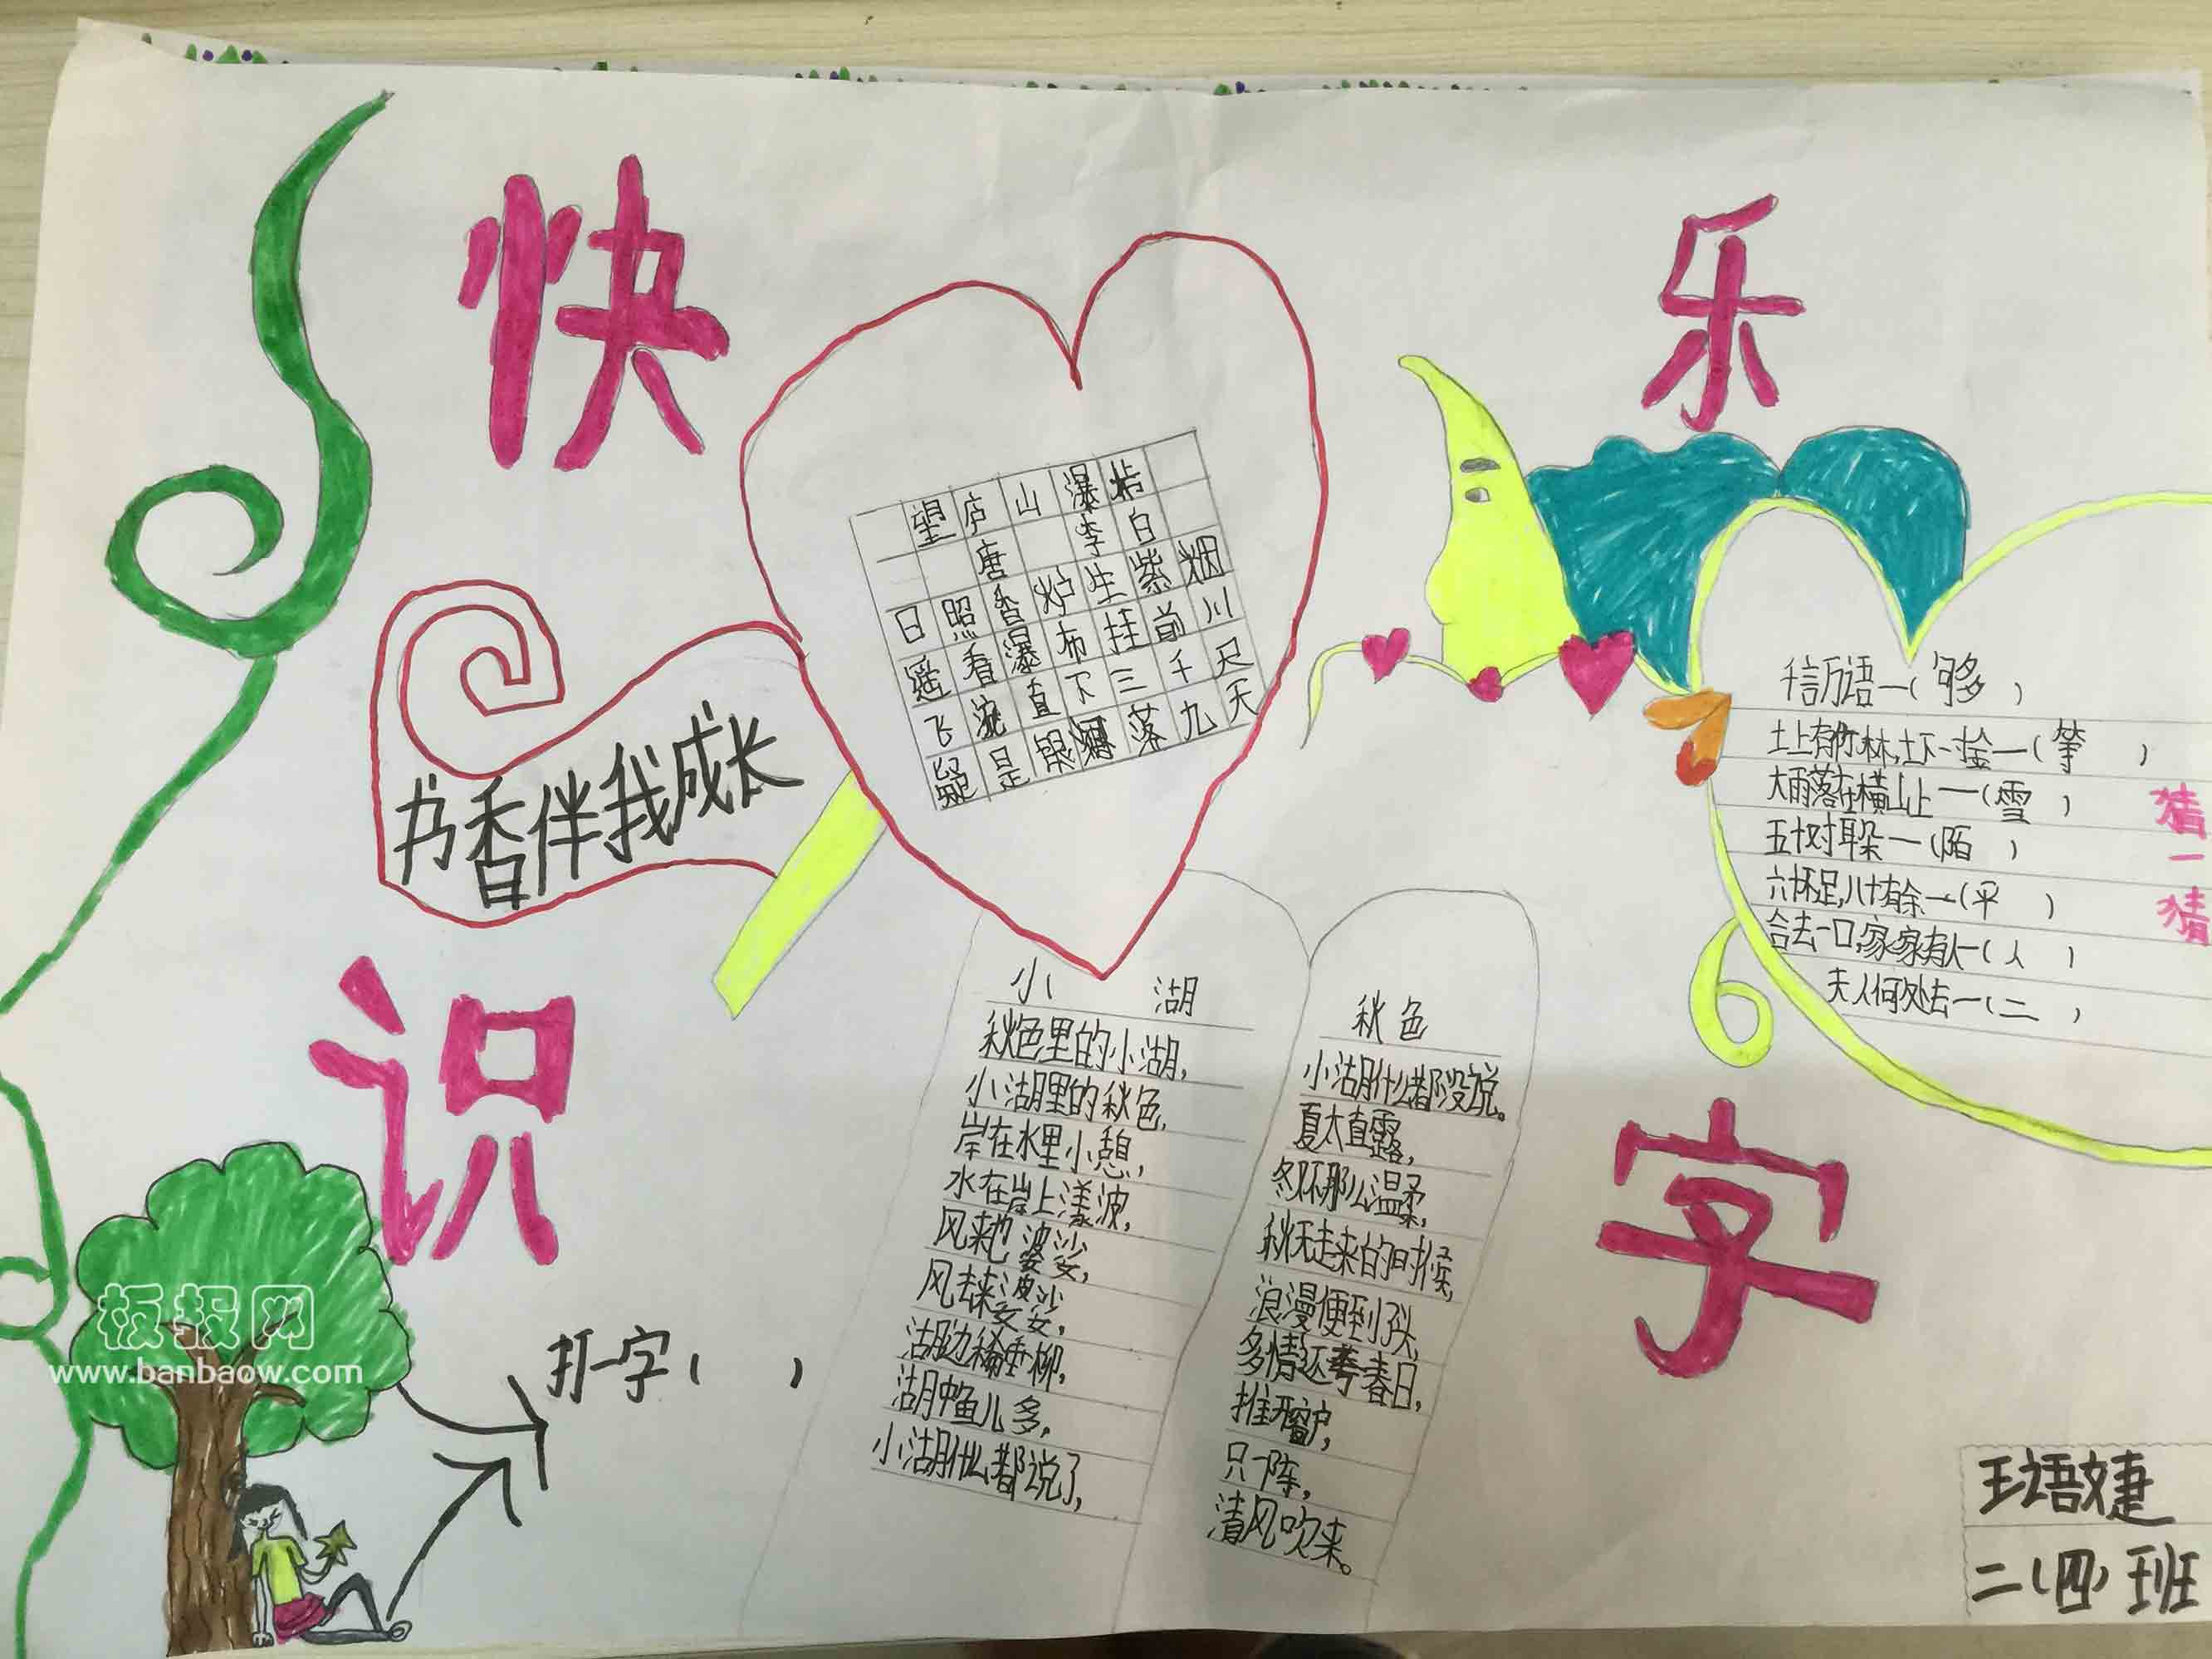 快
乐
识
字
书香伴我成长
望庐山瀑
唐 李白
日照香炉生紫烟
遥看瀑布挂前川
飞流直下三千尺
疑是银河落九天
小 湖
秋色里的小湖,
小湖里的秋色,
岸在水里小憩,
水在岸上漾波,
风来也婆娑,
风去来婆娑,
湖边稀垂柳,
湖中鱼儿多,
小湖什么都说了,
秋色
小湖什么都没说。
夏太直露,
冬不那么温柔,
秋天走来的时候,
浪漫便到了头,
多情还等春日,
推开窗户,
只一阵,
清风吹来。
千言万语一(够 )
土上有竹林,土下一寸金一(等 )
大雨落在横山上一(雪 )
五十对耳朵一(陌 )
六十不足,八十有余一(平 )
合去一口,家家有人一(人 )
夫人何处去一(二 )
猜一猜
打一字( )
王语婕
二(四)班
板报网
www.banbaow.com